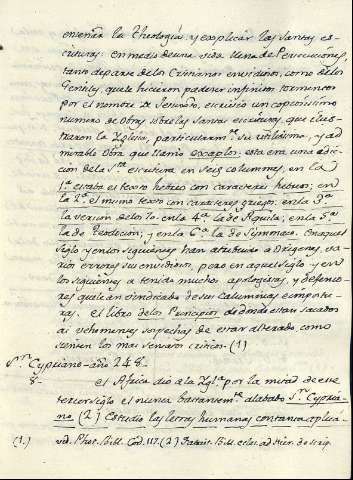 enseñar la theologia y explicar las santas es-
crituras: en medio de una vida llena de Persecuciones,
tanto de parte de los Cristianos envidiosos, como de los
Gentiles, que le hicieron padecer infinitos tormentos
por el nombre de Jesuxpto, escrivió un copiosissimo
numero de obras sobre las santas escrituras, que ilus-
traron la Yglesia, particularmte su utilisima, y ad
mirable obra que llamó exaplos: esta era una edic-
cion de la Sta escritura en seis columnas; en la
1ª estaba el texto hebreo con caracteres hebreos; en
la 2ª el mismo texto con caracteres griegos: en la 3ª
la version de los 70: en la 4ª la de Aquila; en la 5ª
la de Teodocion; y en la 6ª la de Symmaco. En aquel
siglo y en los siguientes han atribuido a Origenes va-
rios errores sus envidiosos, pero en aquel siglo y en
los siguientes a tenido muchos apologistas, y defenso-
res que le an vindicado de sus calumnias e impostu-
ras. el libro de los Principios de donde estan sacados
ai vehementes sospechas de estar alterado, como
sienten los mas sensatos criticos. (1)
Sn Cypriano-año 248-
8- el Africa dio a la Ygla por la mitad de este
tercer siglo el nunca bastantemte alabado Sn Cypria-
no (2) Estudió las letras humanas con tanta aplica-
(1.) vd. Phot. Bibl. Cod. 117. (2) Fabrit. Bibl. ecles. ad Hier. de Scrip.